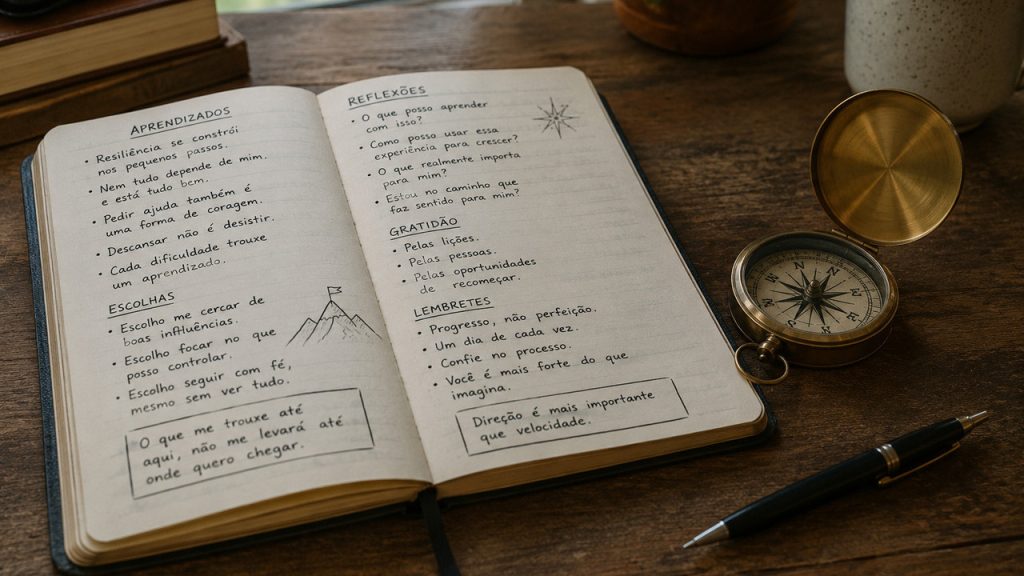 APRENDIZADOS
• Resiliência se constrói
nos pequenos passos.
• Nem tudo depende de mim,
e está tudo bem.
• Pedir ajuda também é
uma forma de coragem.
• Descansar não é desistir.
• Cada dificuldade trouxe
um aprendizado.
ESCOLHAS
• Escolho me cercar de
boas influências.
• Escolho focar no que
posso controlar.
• Escolho seguir com fé,
mesmo sem ver tudo.
O que me trouxe até
aqui, não me levará até
onde quero chegar.
REFLEXÕES
• O que posso aprender
com isso?
• Como posso usar essa
experiência para crescer?
• O que realmente importa
para mim?
• Estou no caminho que
faz sentido para mim?
GRATIDÃO
• Pelas lições.
• Pelas pessoas.
• Pelas oportunidades
de recomeçar.
LEMBRETES
• Progresso, não perfeição.
• Um dia de cada vez.
• Confie no processo.
• Você é mais forte do que
imagina.
Direção é mais importante
que velocidade.